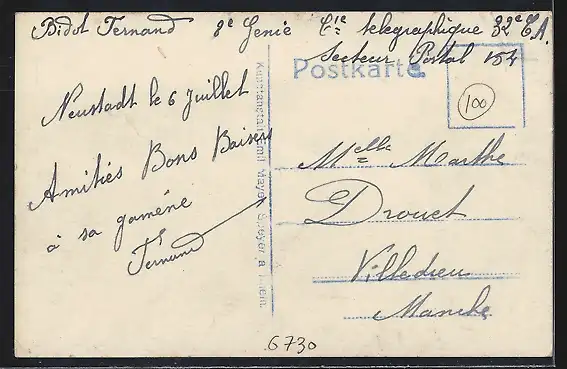 Bidot Fernand 8e Genie Cie telegraphique 32e C.A.
Secteur Postal 154
Postkarte
100
Neustadt le 6 Juillet
Amitiés Bons Baisers
à sa gamène
Fernand
Melle Marthe
Drouet
Villedieu
Manche
Kunstanstalt Emil Mayer, Speyer a. Rhein.
6730